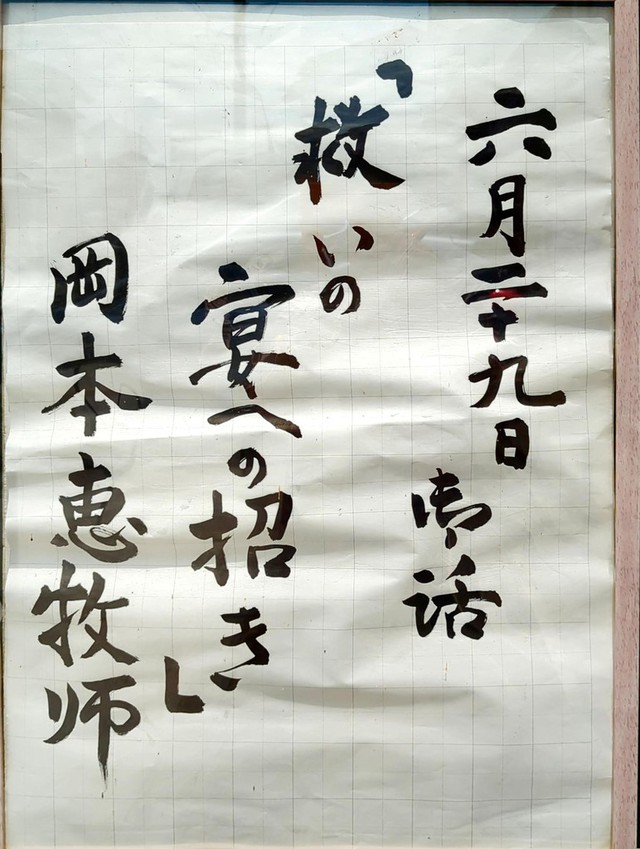 六月二十九日
御話
「救いの
宴への招き」
岡本恵牧师